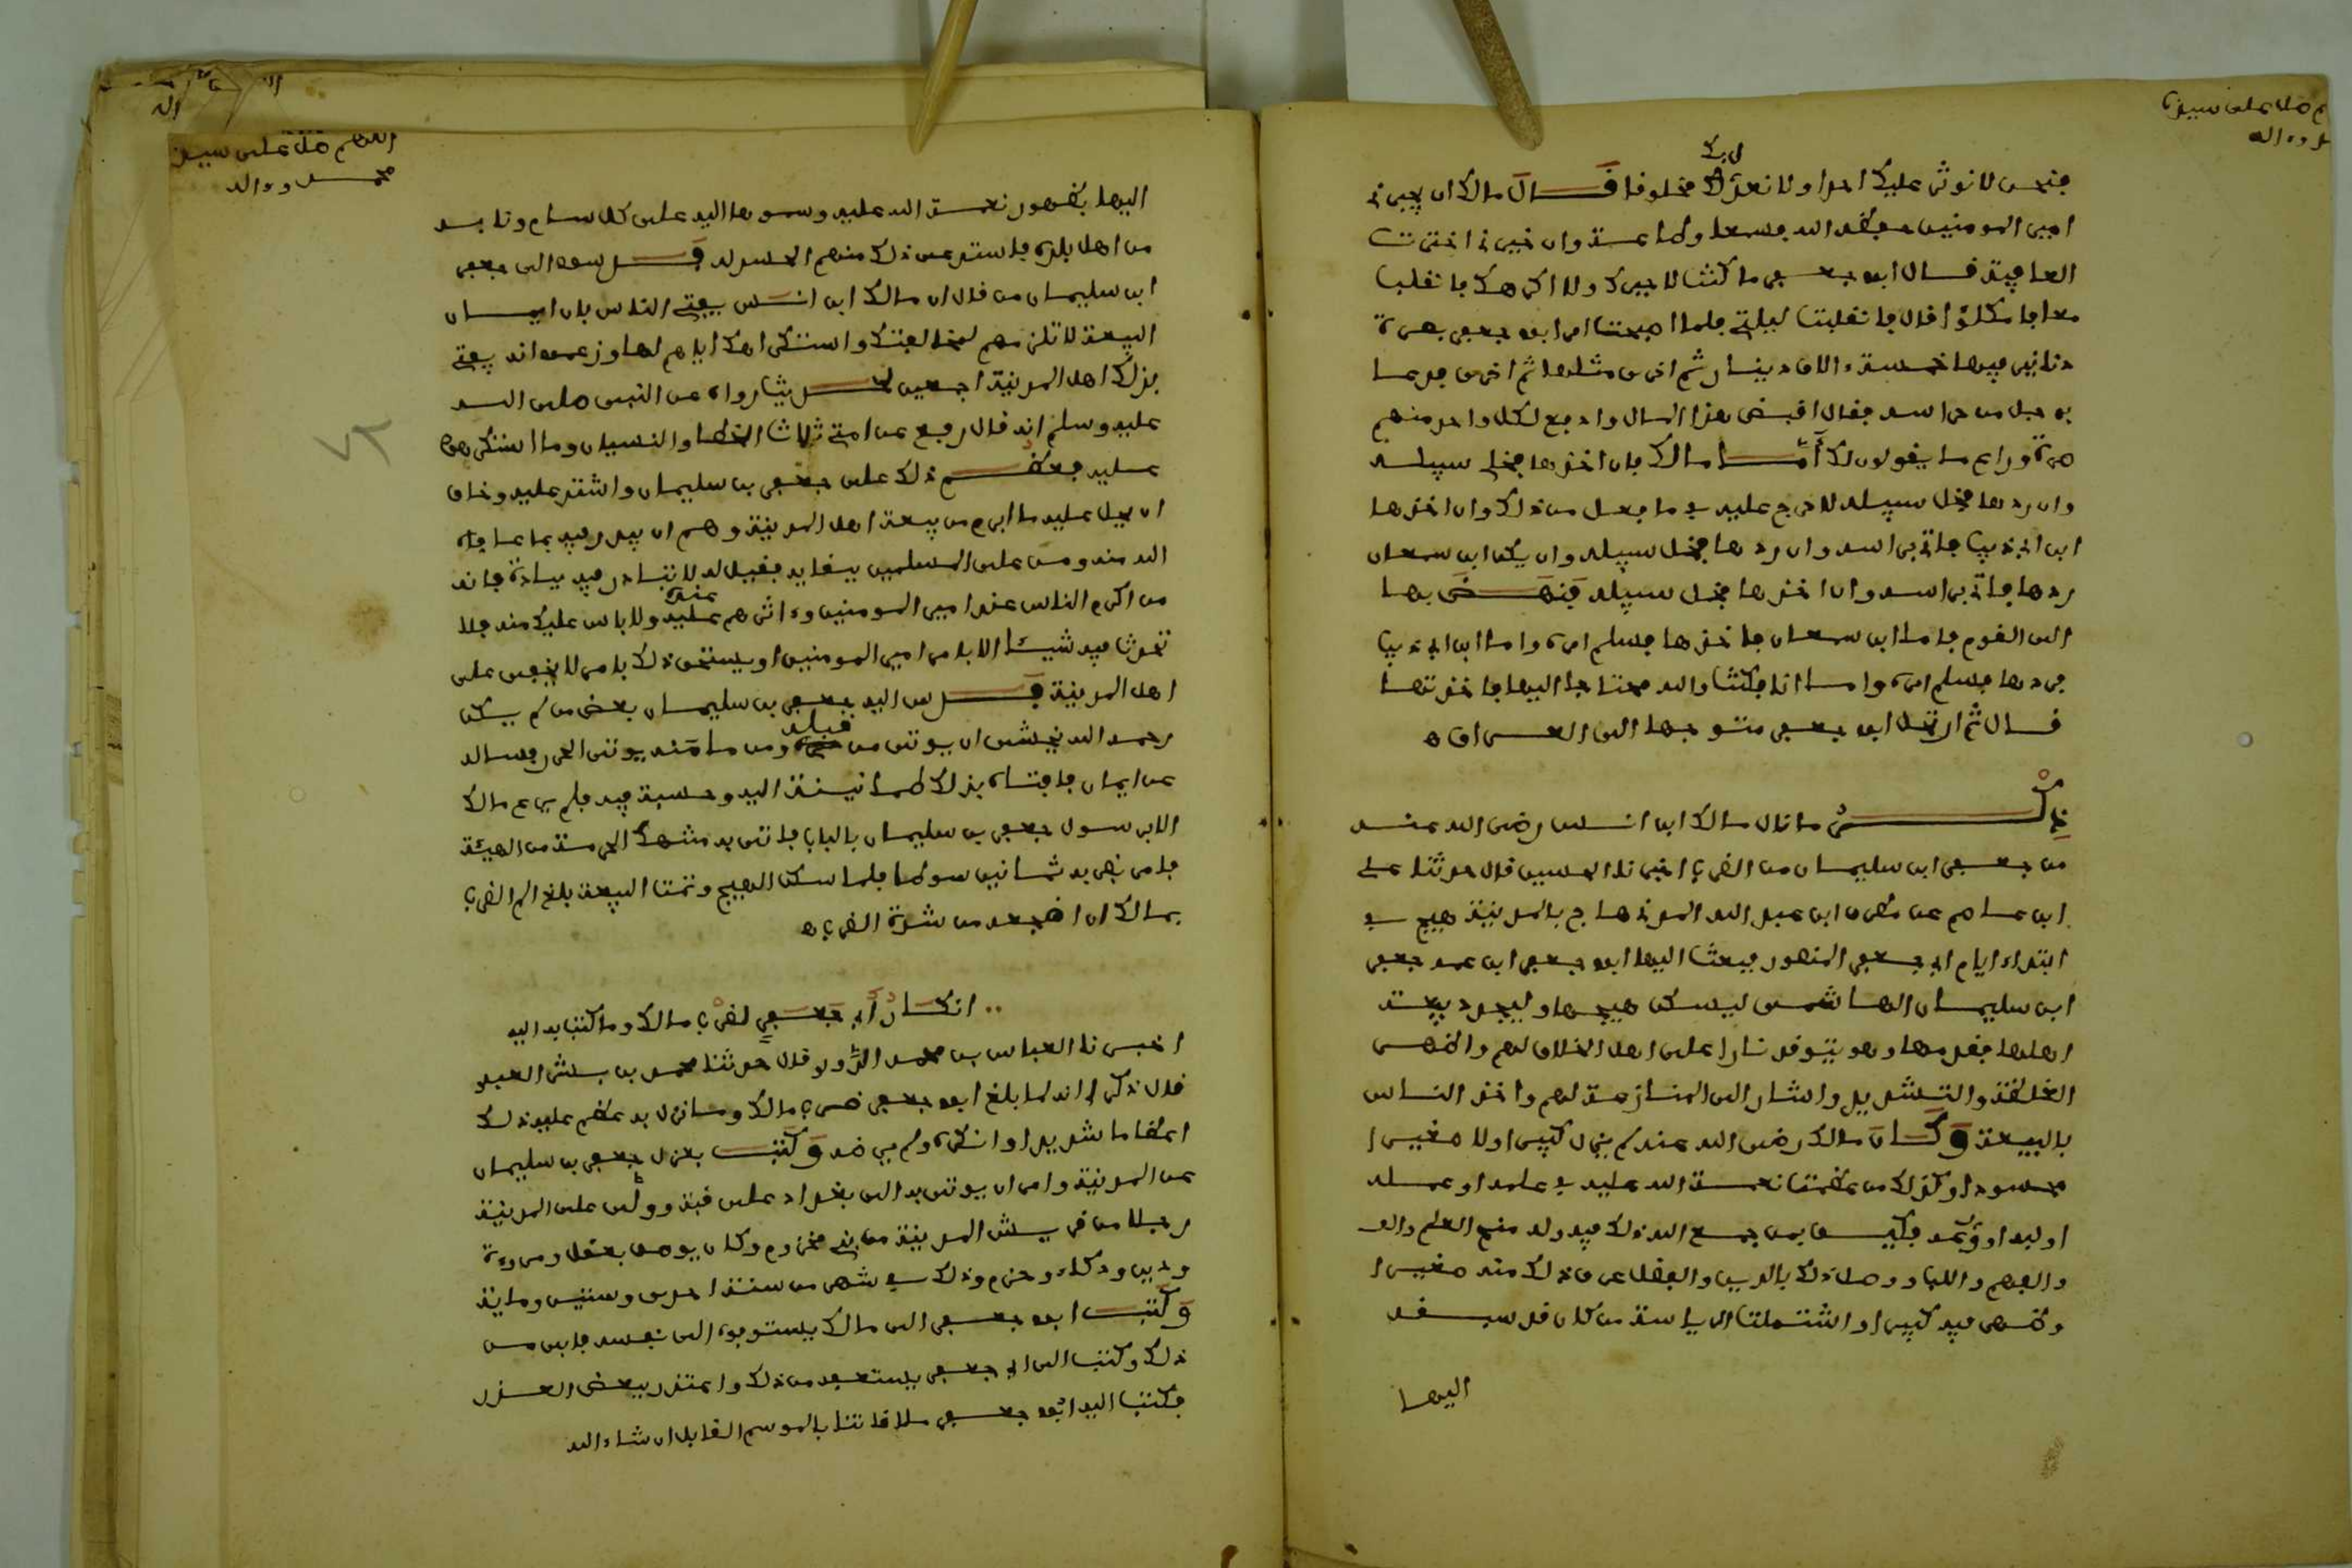 م صل على سيدنا
د وءاله
ل بك
فنحن لا نوثر عليك احدا ولا نعدل مخلوفا فال مالك ان يجبرني
امير المومنين فعفد الله فسمعا وطاعة وان خيرني اخترت
العافية فال ابو جعفر ما كنت لاجبرك ولا اكرهك فانفلب
معافا مكلوا فال فانفلبت ليلتي فلما اصبحت امر ابو جعفر بصرة
دنانير فيها خمسة ءالاف دينار ثم اخرى مثلها ثم اخرى فدعا
برجل من حراسه ففال افبض هذا المال وادفع لكل واحد منهم
صرة وراع ما يفولون لك أما مالك فان اخذها فخل سبيله
وان ردها فخل سبيله لا حرج عليه في ما فعل من ذلك وان اخذها
ابن ابي ذيب فاتني براسه وان ردها فخل سبيله وان يكن ابن سمعان
ردها فاتني براسه وان اخذها فخل سبيله فنهض بها
الى الفوم فاما ابن سمعان فاخذها فسلم امره واما ابن ابي ذيب
فردها فسلم امره واما انا فكنت والله محتاجا اليها فاخذتها
فال ثم ارتحل ابو جعفر متوجها الى العراف ه
ذكر ما نال مالك ابن انس رضى الله عنه
من جعفر ابن سليمان من الضرب اخبرنا الحسين فال حدثنا على
ابن عاصم عن مطرف ابن عبد الله المدني هاج بالمدينة هيج في
ابتداء ايام ابي جعفر المنصور فبعث اليها ابو جعفر ابن عمه جعفر
ابن سليمان الهاشمى ليسكن هيجها وليجدد بيعة
اهلها ففدمها وهو يتوفد نارا على اهل الخلاف لهم واظهر
الغلظة والتشديد واشار الى المنازعة لهم واخذ الناس
بالبيعة وكان مالك رضى الله عنه لم يزل كبيرا ولا صغيرا
محسودا وكذلك من عظمت نعمة الله عليه في علمه او عمله
او لبه او وكيف بمن جمع الله ذلك فيه وله منح العلم والعـ
والفهم واللب ووصل ذلك بالدين والفضل عرف ذلك منه صغيرا
وظهر فيه كبيرا واشتملت الرياسة من كان فد سبفه
اليها
اللهم صل على سيدنا
محمد وءاله
٧٢
اليها بظهور نعمة الله عليه وسموها اليه على كل سام وتابـه
من اهل بلده فاشتد عن ذلك منهم الحسد له فدسوا الى جعفر
ابن سليمان من فال ان مالك ابن انس يفتي الناس بان ايمان
البيعة لا تلزمهم لمخالفتك واستكراهك اياهم لها وزعموا انه يفتي
بذلك اهل المدينة اجمعين لحديث رواه عن النبي صلى الله
عليه وسلم انه فال رفع عن امتي ثلاث الخطا والنسيان وما استكرهوا
عليه فعظم ذلك على جعفر بن سليمان واشتد عليه وخاف
ان يحل عليه ما ابرم من بيعة اهل المدينة وهم ان يبدر فيه بما عافاه
الله منه ومن على المسلمين ببفايه ففيل له لا تبادر فيه ببادرة فانه
من اكرم الناس عند امير المومنين وءاثرهم عنده ولا باس عليك منه فلا
تحدث فيه شيئا الا بامر امير المومنين او يستحق ذلك بامر لا يخفى على
اهل المدينة فدس اليه جعفر بن سليمان بعض من لم يكن
رحمه الله يخشى ان يوتى من فبله ومن مامنه يوتى الحذر فساله
عن ايمان فافتاه بذلك طمانينة اليه وحسبة فيه فلم يرع مالك
الا برسول جعفر بن سليمان بالباب فاتي به منتهك الحرمة من الهيئة
فامر بضربه ثمانين سوطا فلما سكن الهيج وتمت البيعة بلغ الم الضرب
بمالك ان اضجعه من شدة الضرب ه
انكار أبي جعفر لضرب مالك وما كتب به اليه
اخبرنا العباس بن محمد فال حدثنا محمد بن العبد
فال ذكر لي انه لما بلغ ابو جعفر ضرب مالك وما نزل به عظم عليه ذلك
اعظاما شديدا وانكره ولم يرضه وكتب بعزل جعفر بن سليمان
عن المدينة وامر ان يوتى به الى بغداد على فتب وولى على المدينة
رجلا من فريش المدينة من بني مخزوم وكان يوصف بعفل ومروءة
ودين وذكاء وحزم وذلك في شهر من سنة احدى وستين وماية
وكتب ابو جعفر الى مالك يستوفده الى نفسه فابى من
ذلك وكتب الى ابي جعفر يستعفيه من ذلك واعتذر ببعض العذر
فكتب اليه ابو جعفر ملافاتنا بالموسم الفابل ان شاء الله